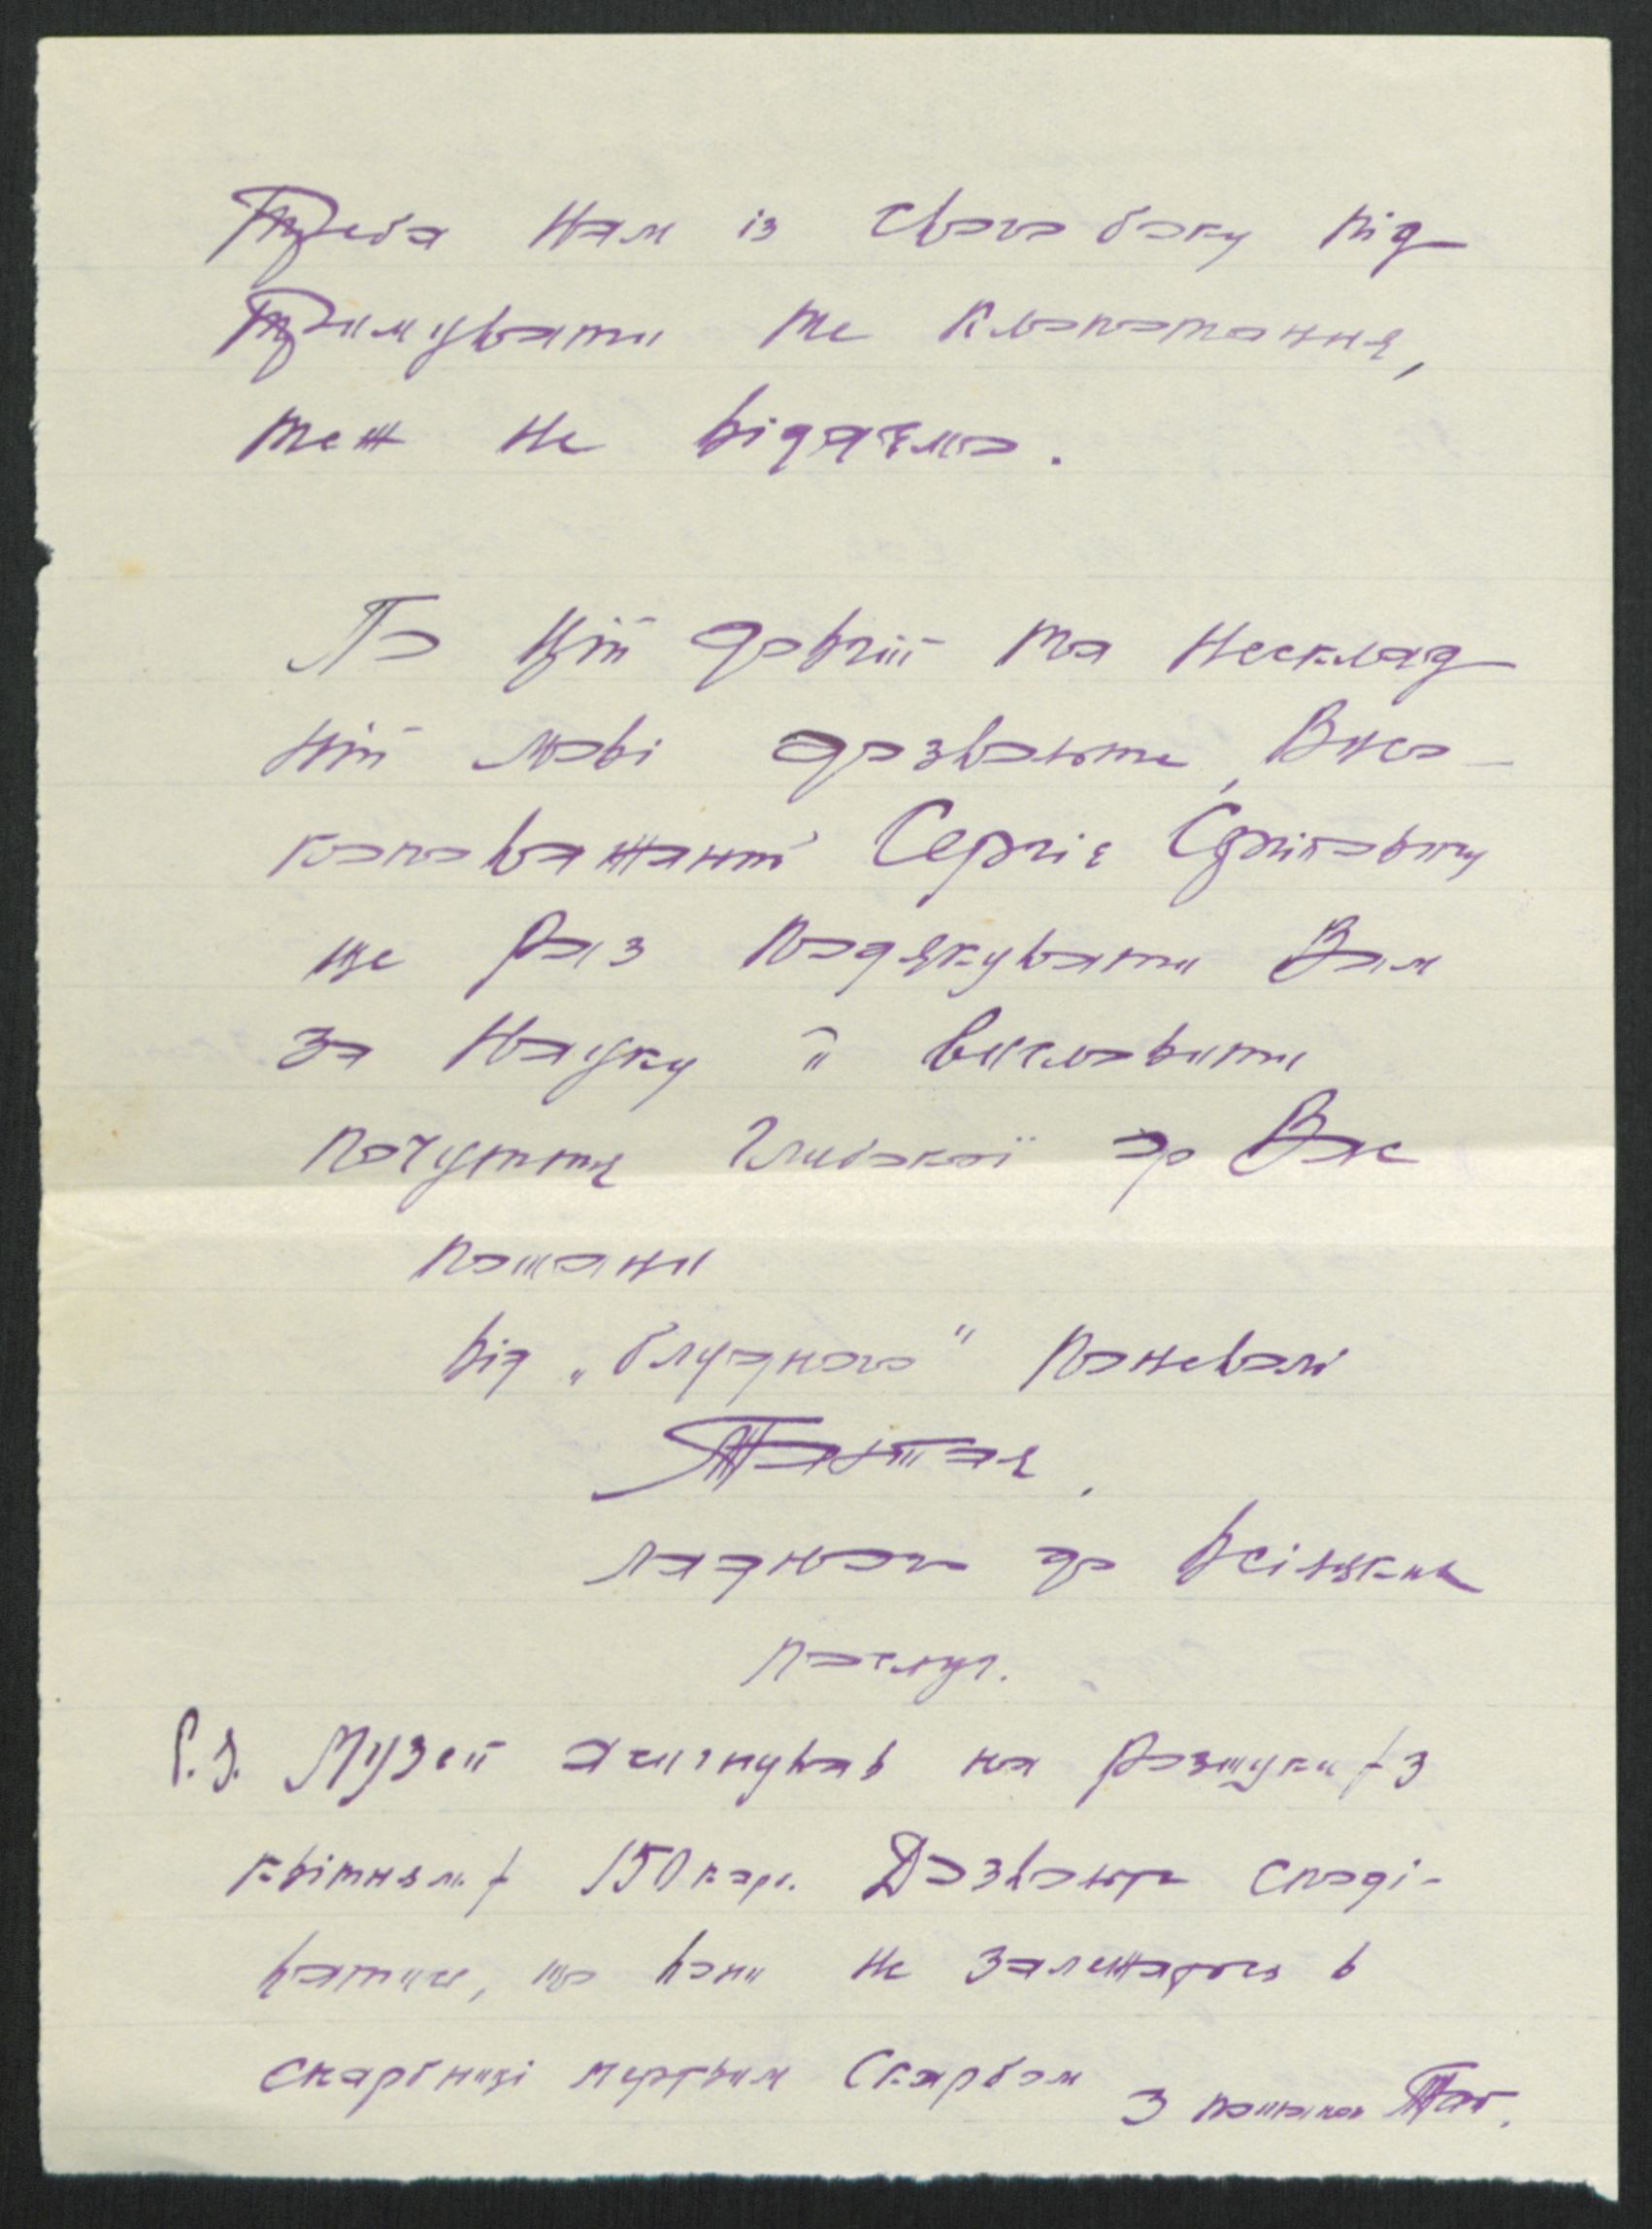 Треба нам із свого боку під
тримувати те клопотання,
теж не відаємо.
По цій довгій та несклад
ній мові дозвольте, Висо-
коповажаний Сергіє Єфтіковичу
ще раз подякувати Вам
за науку й висловити
почуття глибокої до Вас
пошани
від „блудного" Поневолі
ладного до всіляких
послуг.
P.S. Музей асигнував на розшуки / з
квітня м. / 150 кар. Дозвольте споді-
ватися, що вони не залежаться в
скарбниці мертвим скарбом
З пошаною